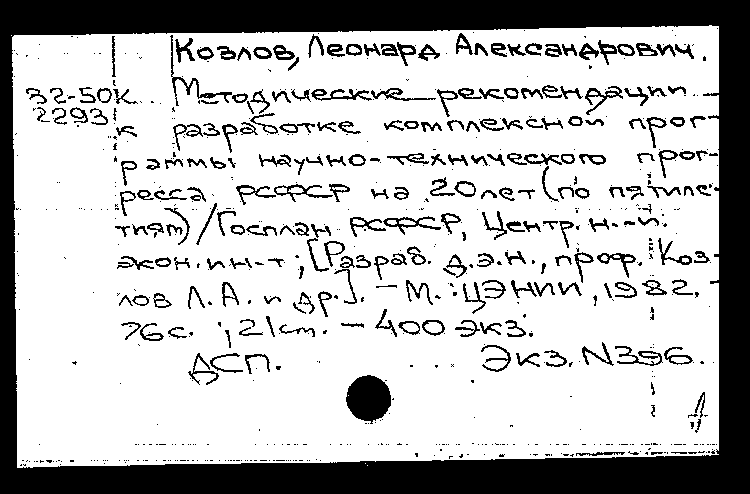 Козлов, Леонард Александрович.
32-50К Методические рекомендации
2293 к разработке комплексной прог-
раммы научно-технического прог-
ресса РСФСР на 20 лет (по пятиле-
тиям) / Госплан РСФСР, Центр. н.-и.
экон. ин-т ; [Разраб. д.э.н., проф. Коз-
лов Л.А. и др.]. - М. : ЦЭНИИ, 1982. -
76с. ; 21 см. - 400 экз.
ДСП. Экз. N396.